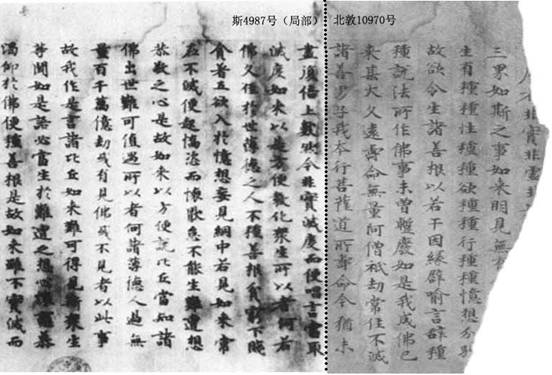 斯4987号（局部） 北敦10970号
非實非虛非
三界如斯之事如來明見無
生有種種性種種欲種種行種種憶想分別
故欲令生諸善根以若干因緣譬喻言辭種
種說法所作佛事未曾暫廢如是我成佛已
來甚大久遠壽命無量阿僧祇劫常住不滅
諸善男子我本行菩薩道所壽命今猶未
盡復倍上數然今非實滅度而便唱言當取
滅度如來以是方便教化眾生所以者何若
佛久住於世薄德之人不種善根貧窮下賤
貪著五欲入於憶想妄見網中若見如來常
在不滅便起憍恣而懷厭怠不能生難遭想
恭敬之心是故如來以方便說比丘當知諸
佛出世難可值遇所以者何諸薄德人過無
量百千萬億劫或有見佛或不見者以此事
故我作是言諸比丘如來難可得見斯眾生
等聞如是語必當生於難遭之想心懷戀慕
渴仰於佛便種善根是故如來雖不實滅而